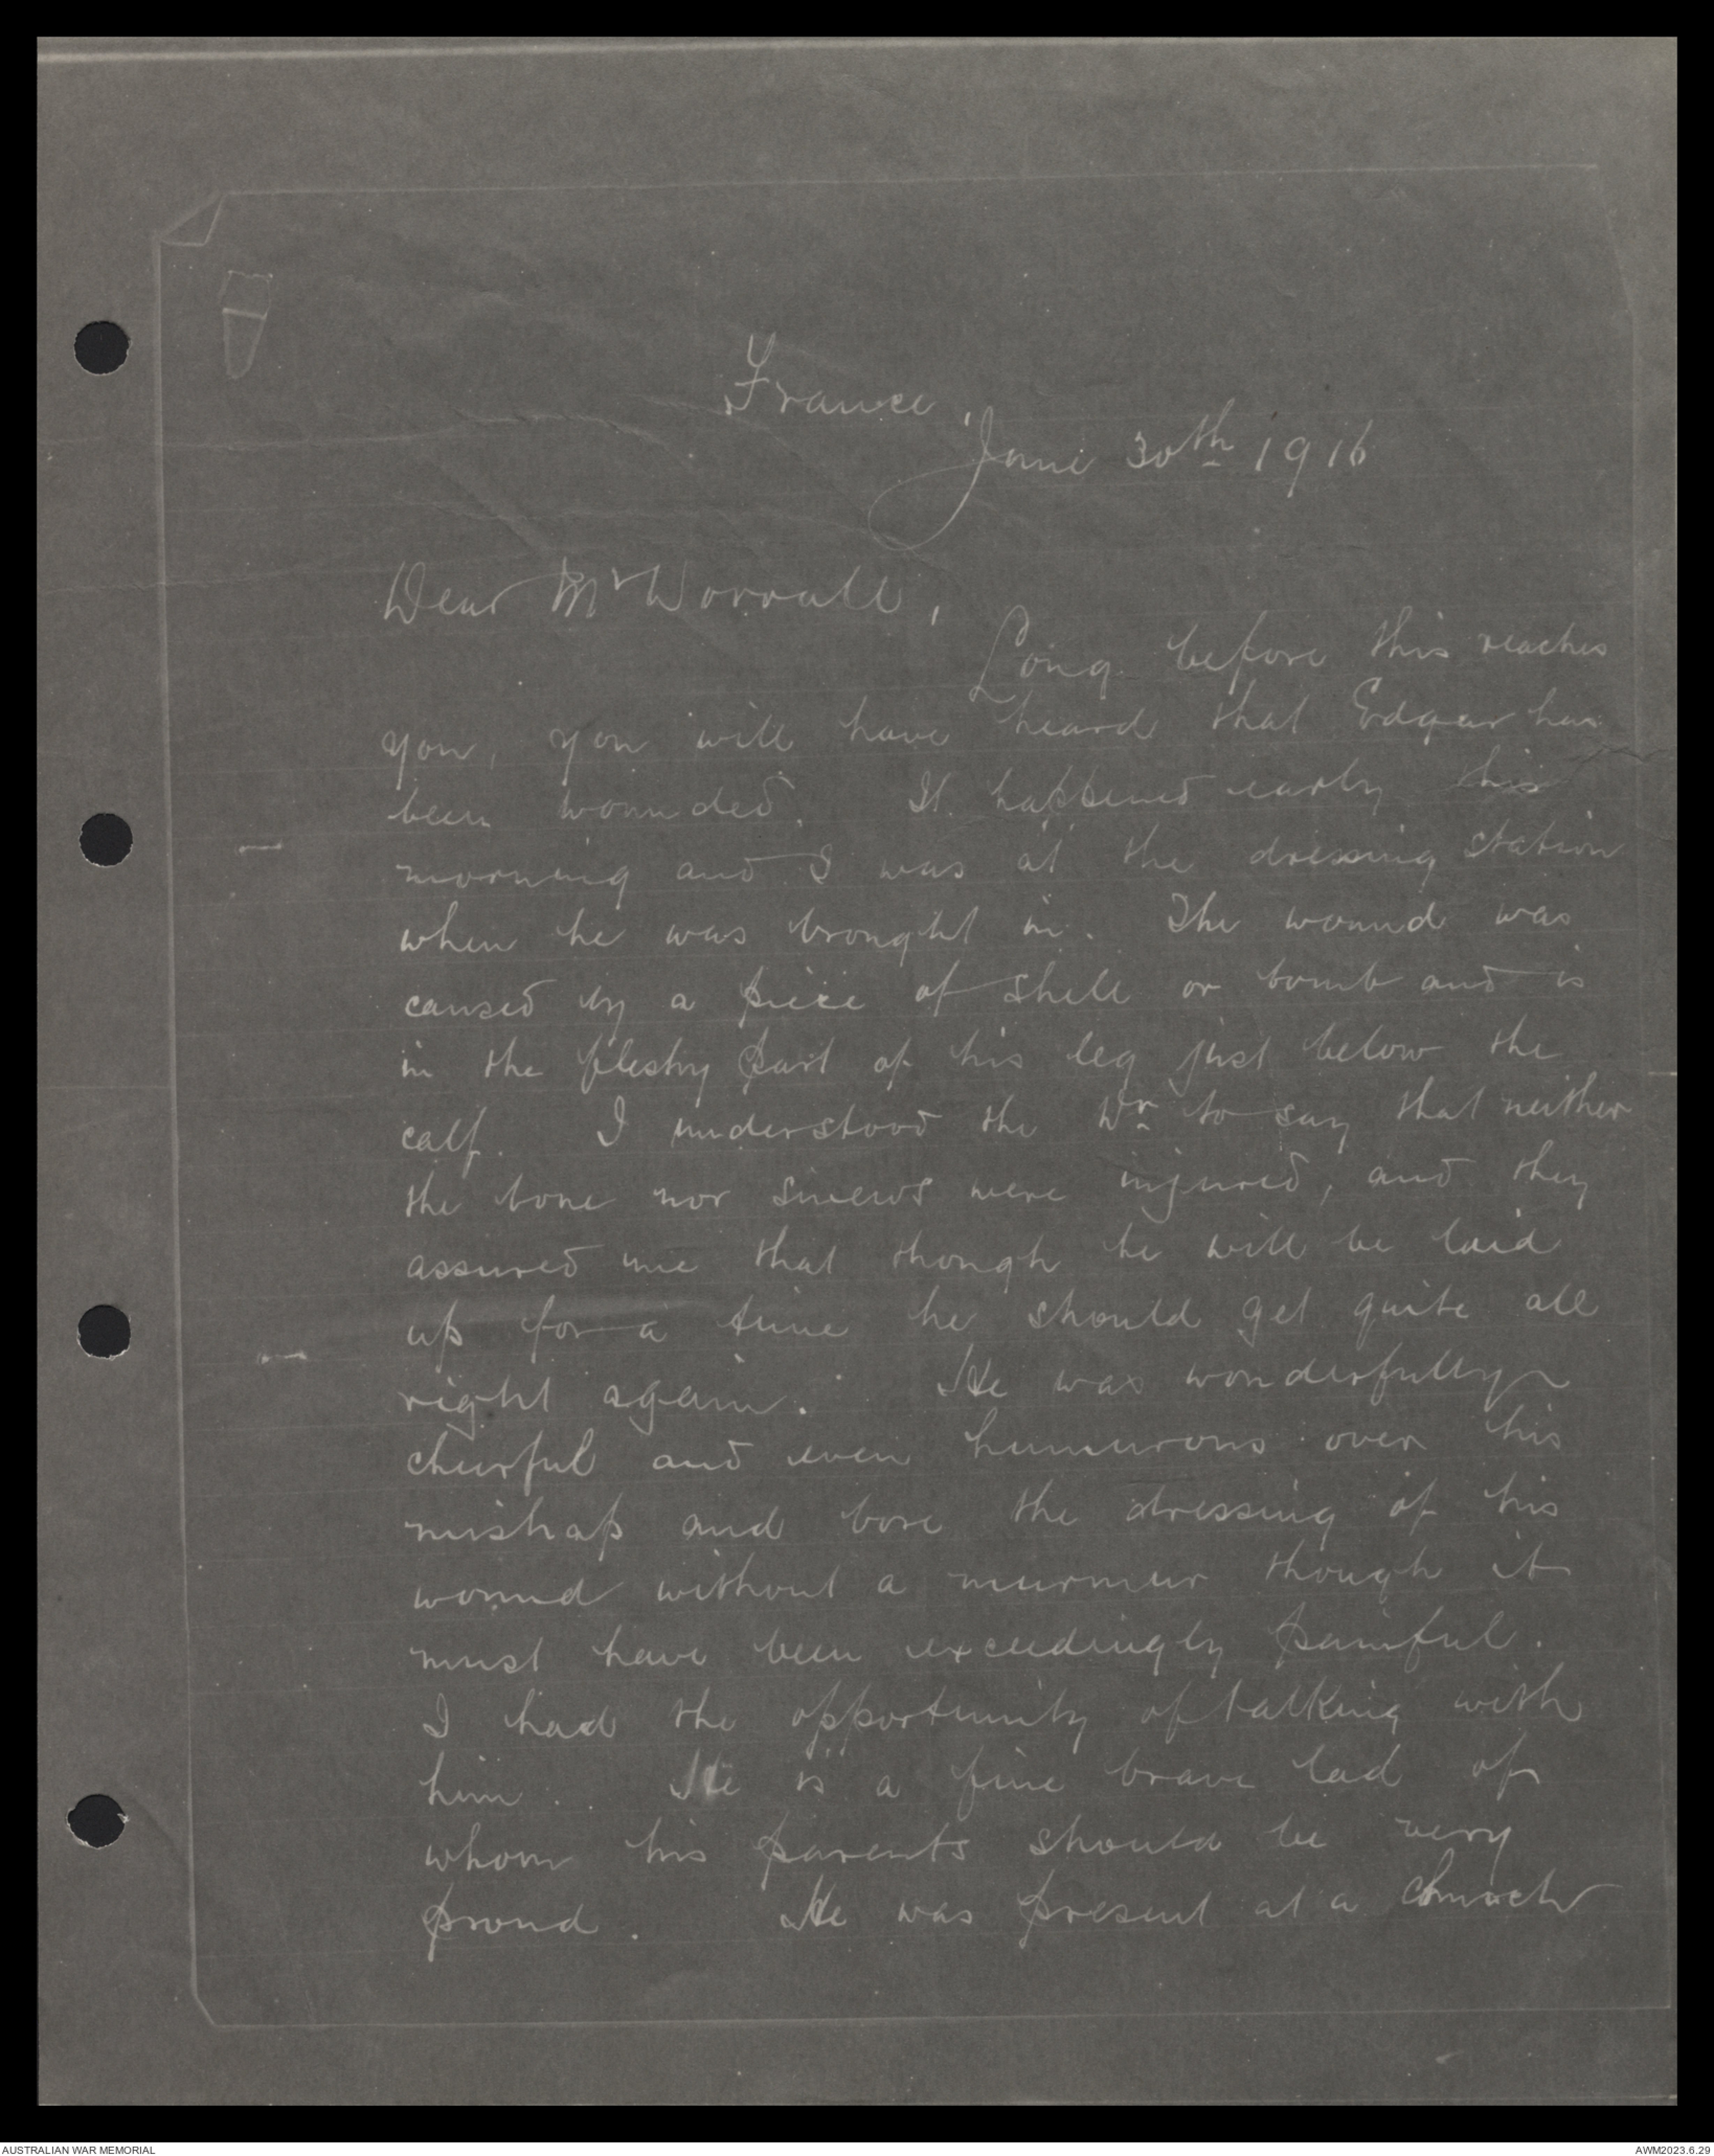 France,
June 30th 1916
Dear Mr Worrall,
Long before this reaches
you, you will have heard that Edgar has
been wounded. It happened early this
morning and I was at the dressing station
when he was brought in. The wound was
caused by a piece of shell or bomb and is
in the fleshy part of his leg just below the
calf. I understood the Dr to say that neither
the bone nor sinews were injured, and they
assured me that though he will be laid
up for a time he should get quite all
right again. He was wonderfully
cheerful and even humurous over his
mishap and bore the dressing of his
wound without a murmur though it
must have been exceedingly painful.
I had the opportunity of talking with
him. He is a fine brave lad of
whom his parents should be very
proud. He was present at a Church
AUSTRALIAN WAR MEMORIAL
AWM2023.6.29